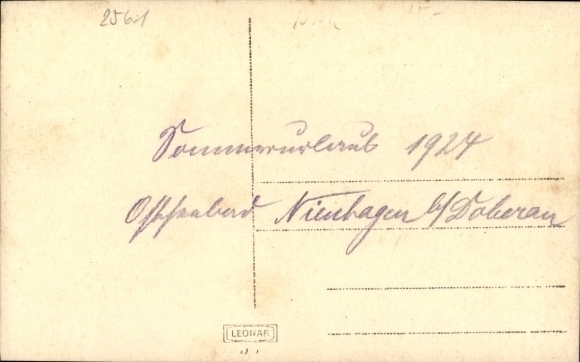 2561
Sommerurlaub 1924
Ostseebad Nienhagen b/Doberan
LEONAR